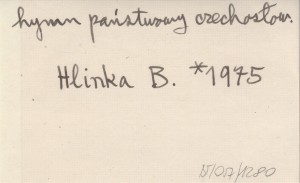 hymn państwowy czechosłow.
Hlinka B. *1975
15/017/1280